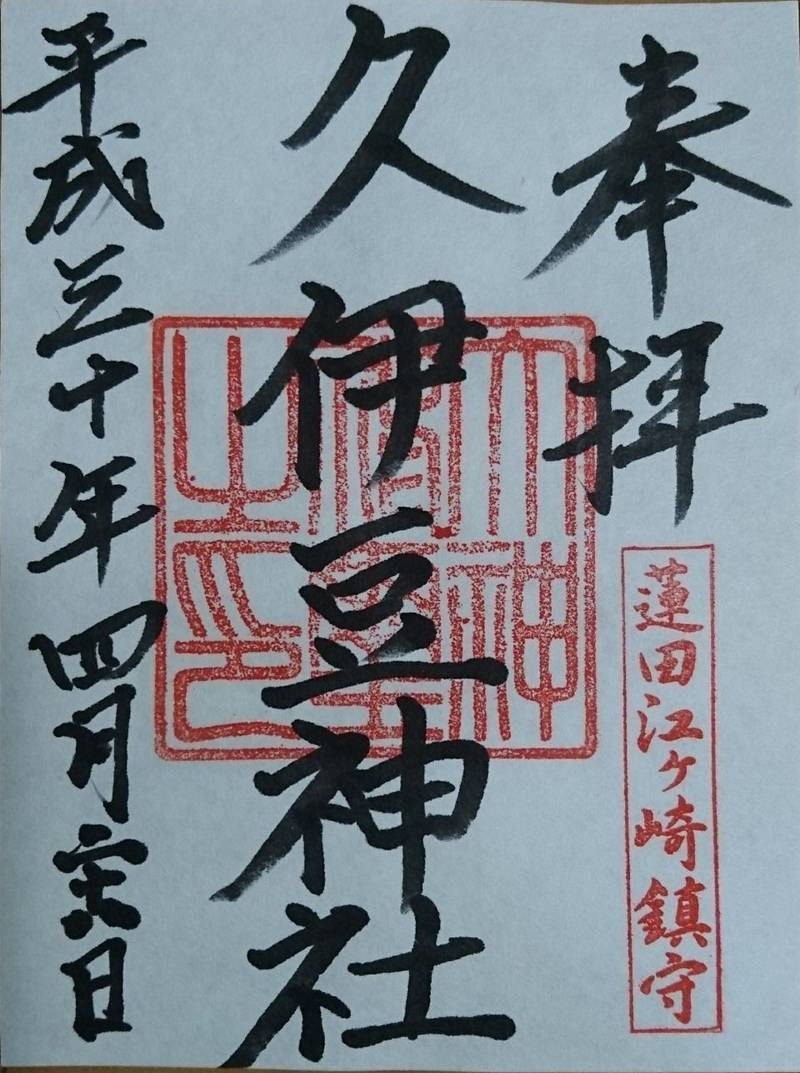 奉拝
蓮田江ヶ崎鎮守
久伊豆神社
大神
之印
平成三十年四月日